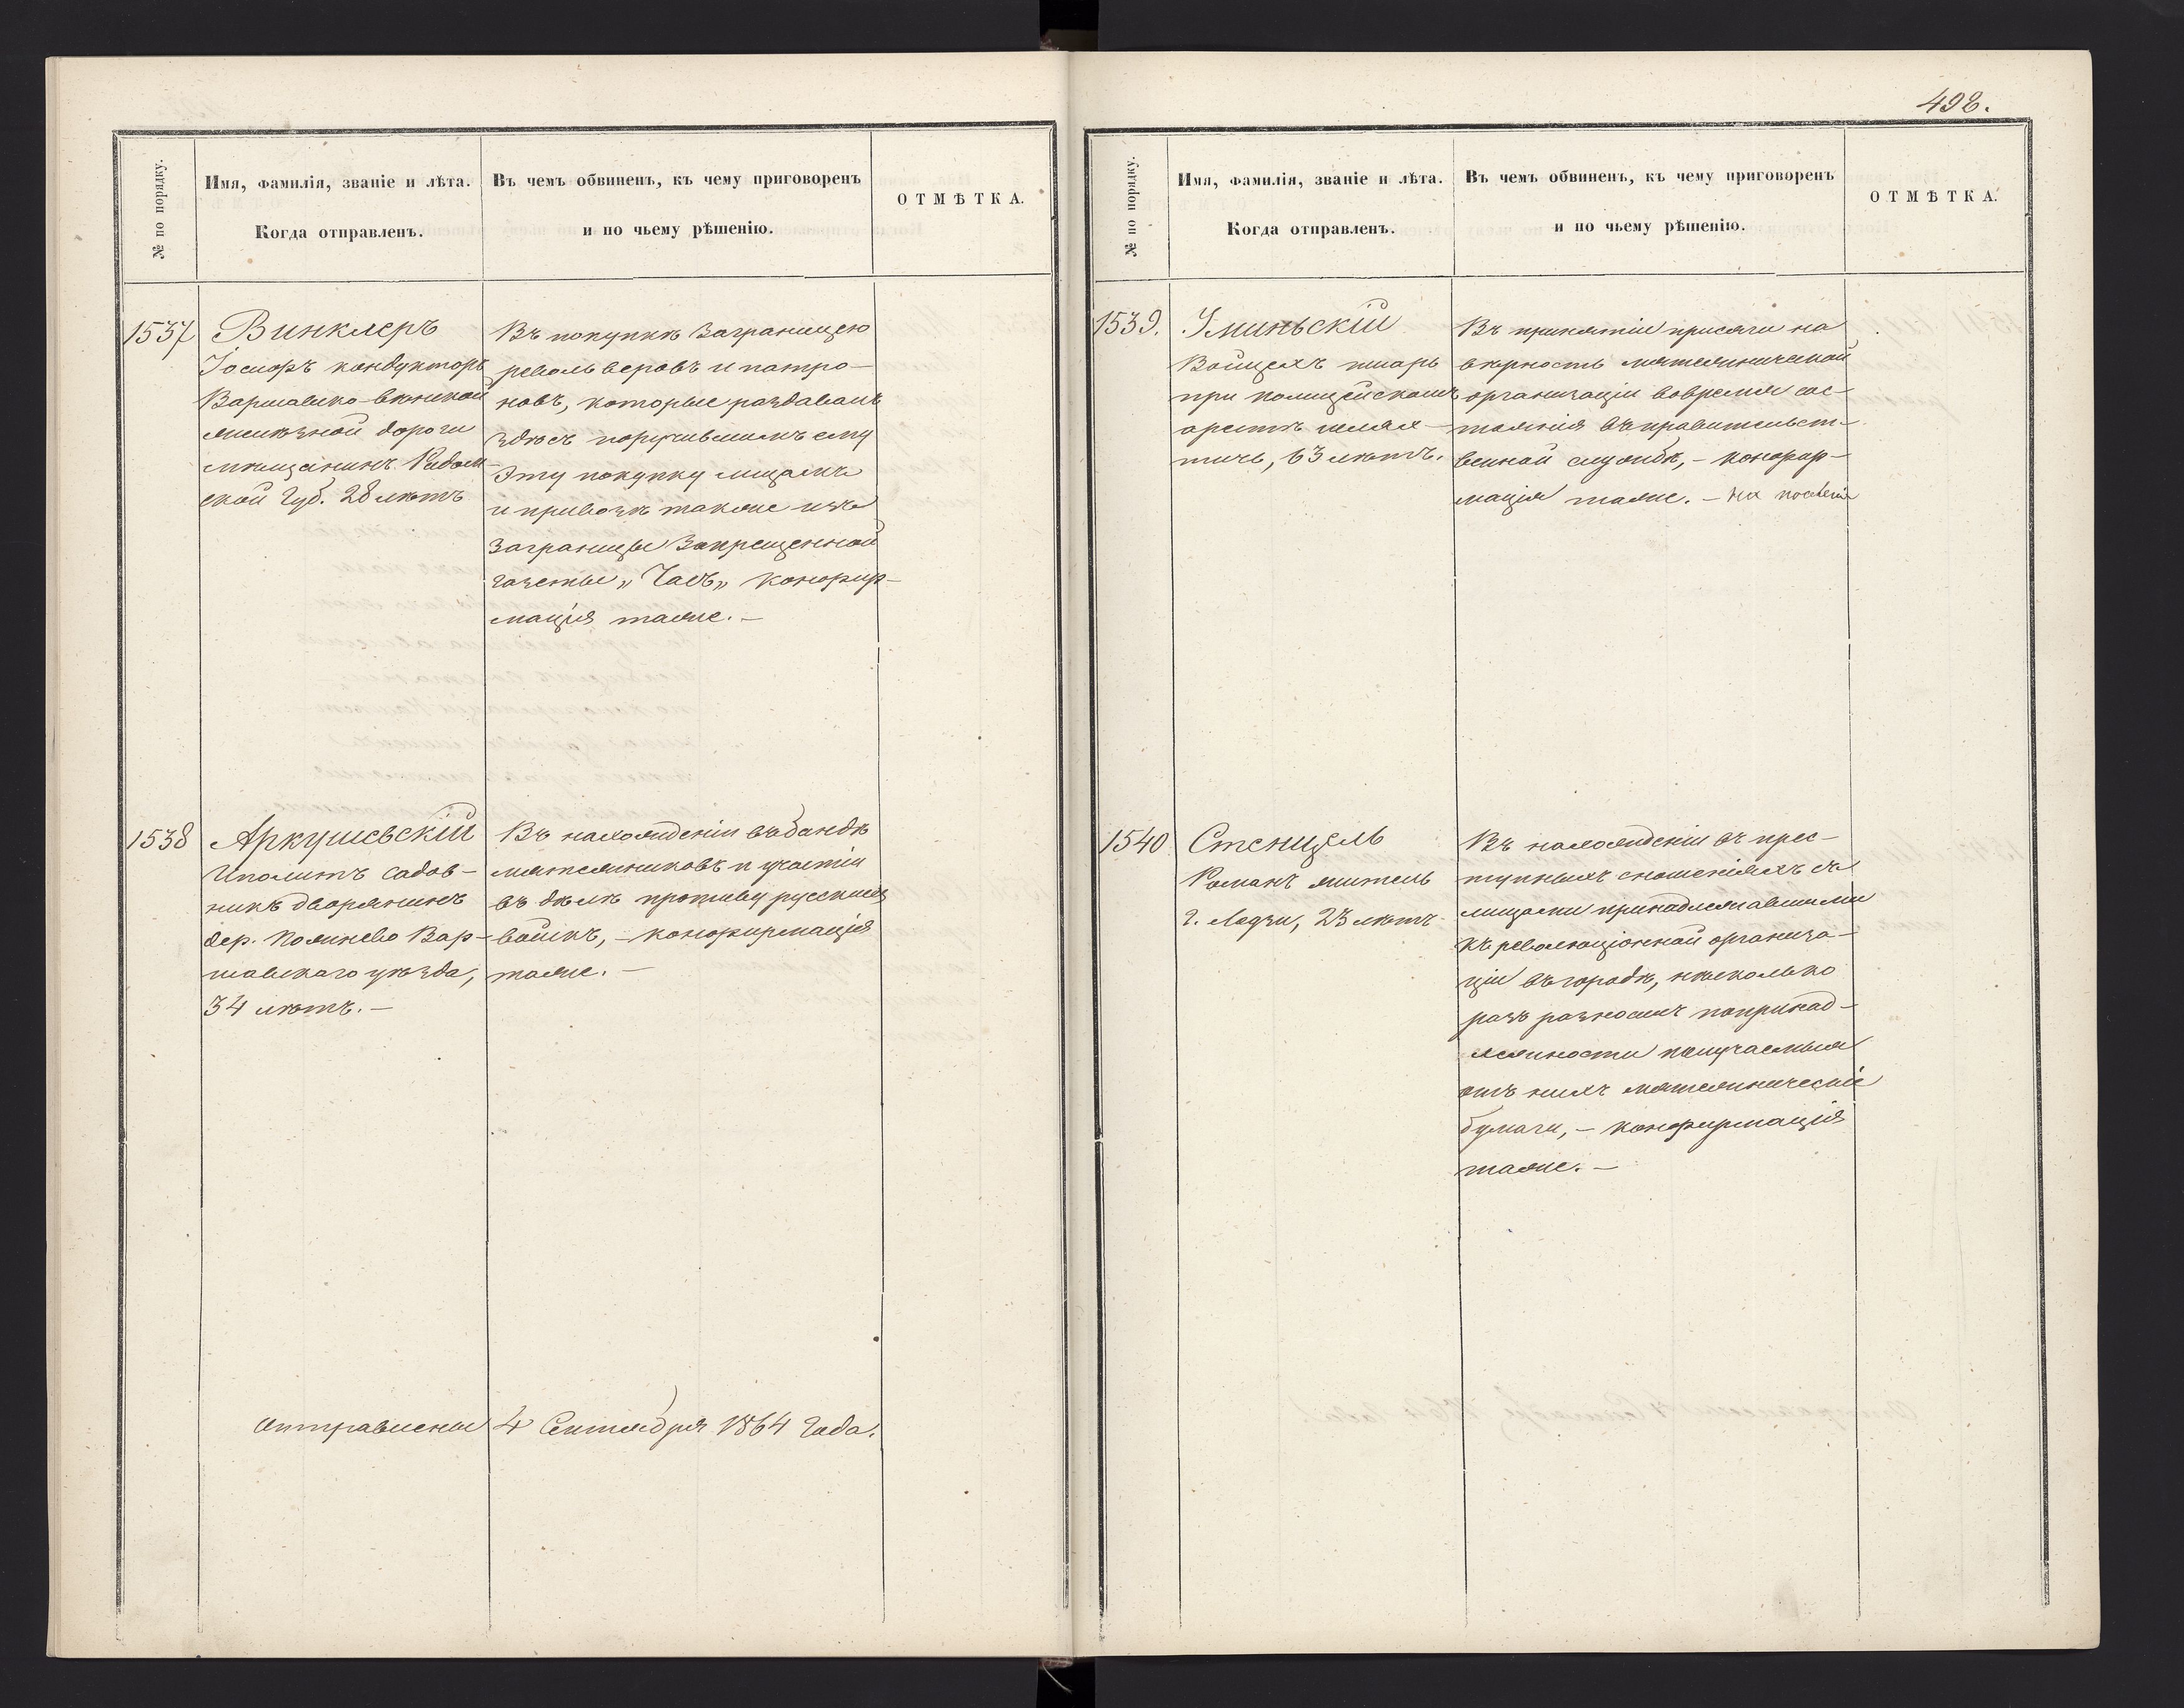 № по порядку.
Имя, фамилія, званіе и лѣта.
Когда отправленъ.
Въ чемъ обвиненъ, къ чему приговоренъ
и по чьему рѣшенію.
ОТМѢТКА.
1537
Винклеръ
Іосифъ кондукторъ
Варшавско-вѣнской
желѣзной дороги
мѣщанинъ Радом-
ской Губ. 28 лѣтъ
Въ покупкѣ Заграницею
револьверовъ и патро-
новъ, которые раздавалъ
здѣсь поручившимъ ему
Эту покупку лицамъ
и привозѣ также изъ
Заграницы Запрещенной
газеты „Часъ„ конфир-
мація таже. —
1538
Аркушевскій
Иполитъ садов-
никъ дворянинъ
дер. Вар-
шавскаго уѣзда,
34 лѣтъ. —
Въ нахожденіи въ бандѣ
мятежниковъ и участіи
въ дѣлѣ противу русскихъ
войскъ, — конфирмація
таже. —
Отправлены 4 Сентября 1864 Года.
498.
№ по порядку.
Имя, фамилія, званіе и лѣта.
Когда отправленъ.
Въ чемъ обвиненъ, къ чему приговоренъ
и по чьему рѣшенію.
ОТМѢТКА.
1539.
Уминьскій
Войцехъ писарь
при полицейскомъ
арестѣ шлях-
тичь, 63 лѣтъ.
Въ принятіи присяги на
вѣрность мятежнической
организаціи вовремя сос-
тоянія въ правительст-
венной службѣ, — конфир-
мація таже. — на поселеніе
1540
Стенцель
Романъ житель
г. Лодзи, 23 лѣтъ
Въ нахожденіи въ прес-
тупныхъ сношеніяхъ съ
лицами принадлежавшими
къ революціонной организа-
ціи въ городѣ, нѣсколько
разъ разносилъ попринад-
лежности получаемыя
отъ нихъ мятежническіе
бумаги, — конфирмація
таже. —